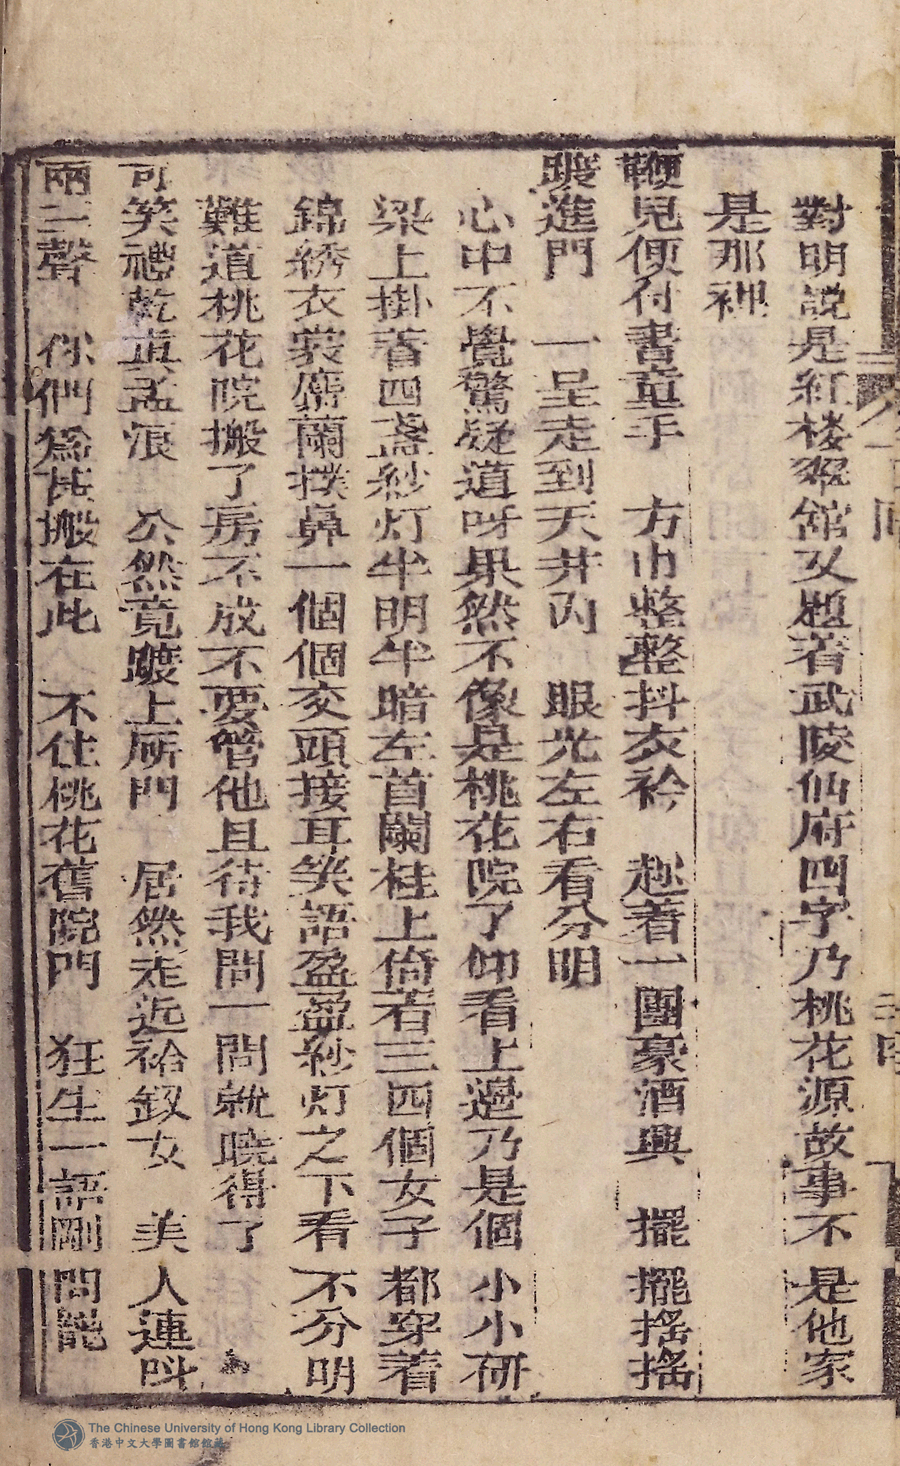 對明説是紅楼翠舘又題著武陵仙府四字乃桃花源故事不是他家
是那裡
鞭兒便付書童手　方巾整整抖衣衿　趂着一團豪酒興　擺擺摇摇
踱進門　一呈走到天井内　眼光左右看分明
心中不覺驚疑道呀果然不像是桃花院了仰看上邉乃是個小小研
梁上掛著四盞紗灯半明半暗左首闌桂上倚若三四個女子都穿着
錦綉衣裳麝蘭撲鼻一個個交頭接耳笑語盈盈紗灯之下看不分明
難道桃花院搬了房不成不要管他且待我問一問就曉得了
可笑禮乾真孟浪　公然竟踱上㕔門　居然走近裙釵女　美人連呌
兩三聲　你們爲甚搬在此　不住桃花舊院門　狂生一語剛問說
The Chinese University of Hong Kong Library Collection
香港中文大學圖書館館藏